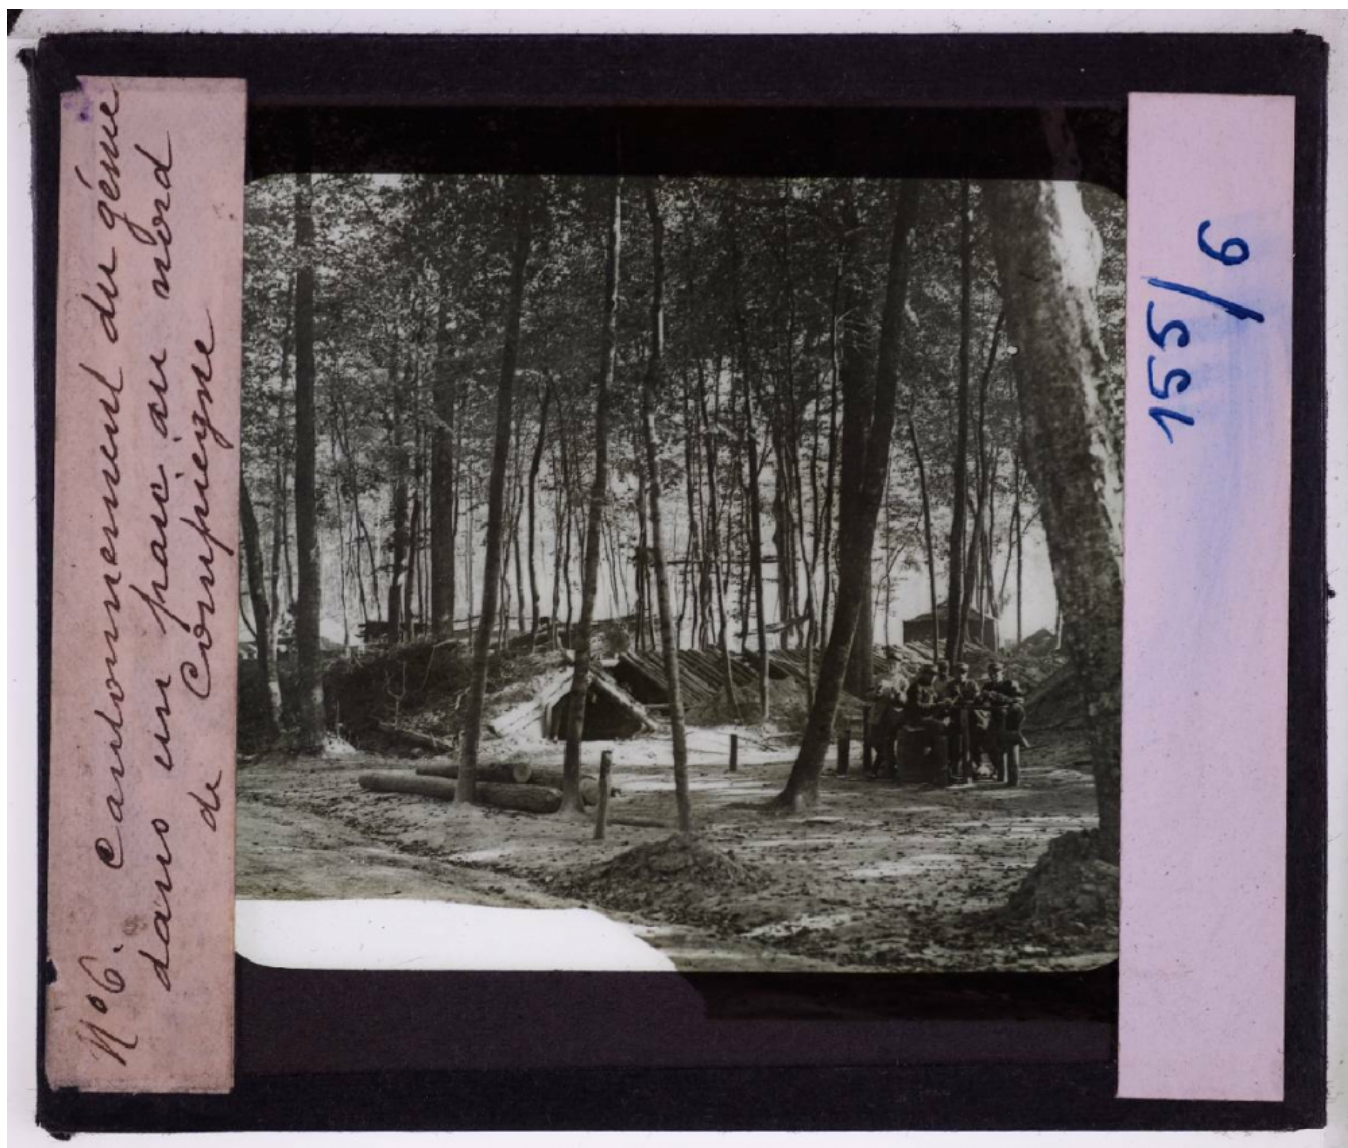 N°6. Cantonnement du génie
dans un parc au nord
de Compiegne
155/6